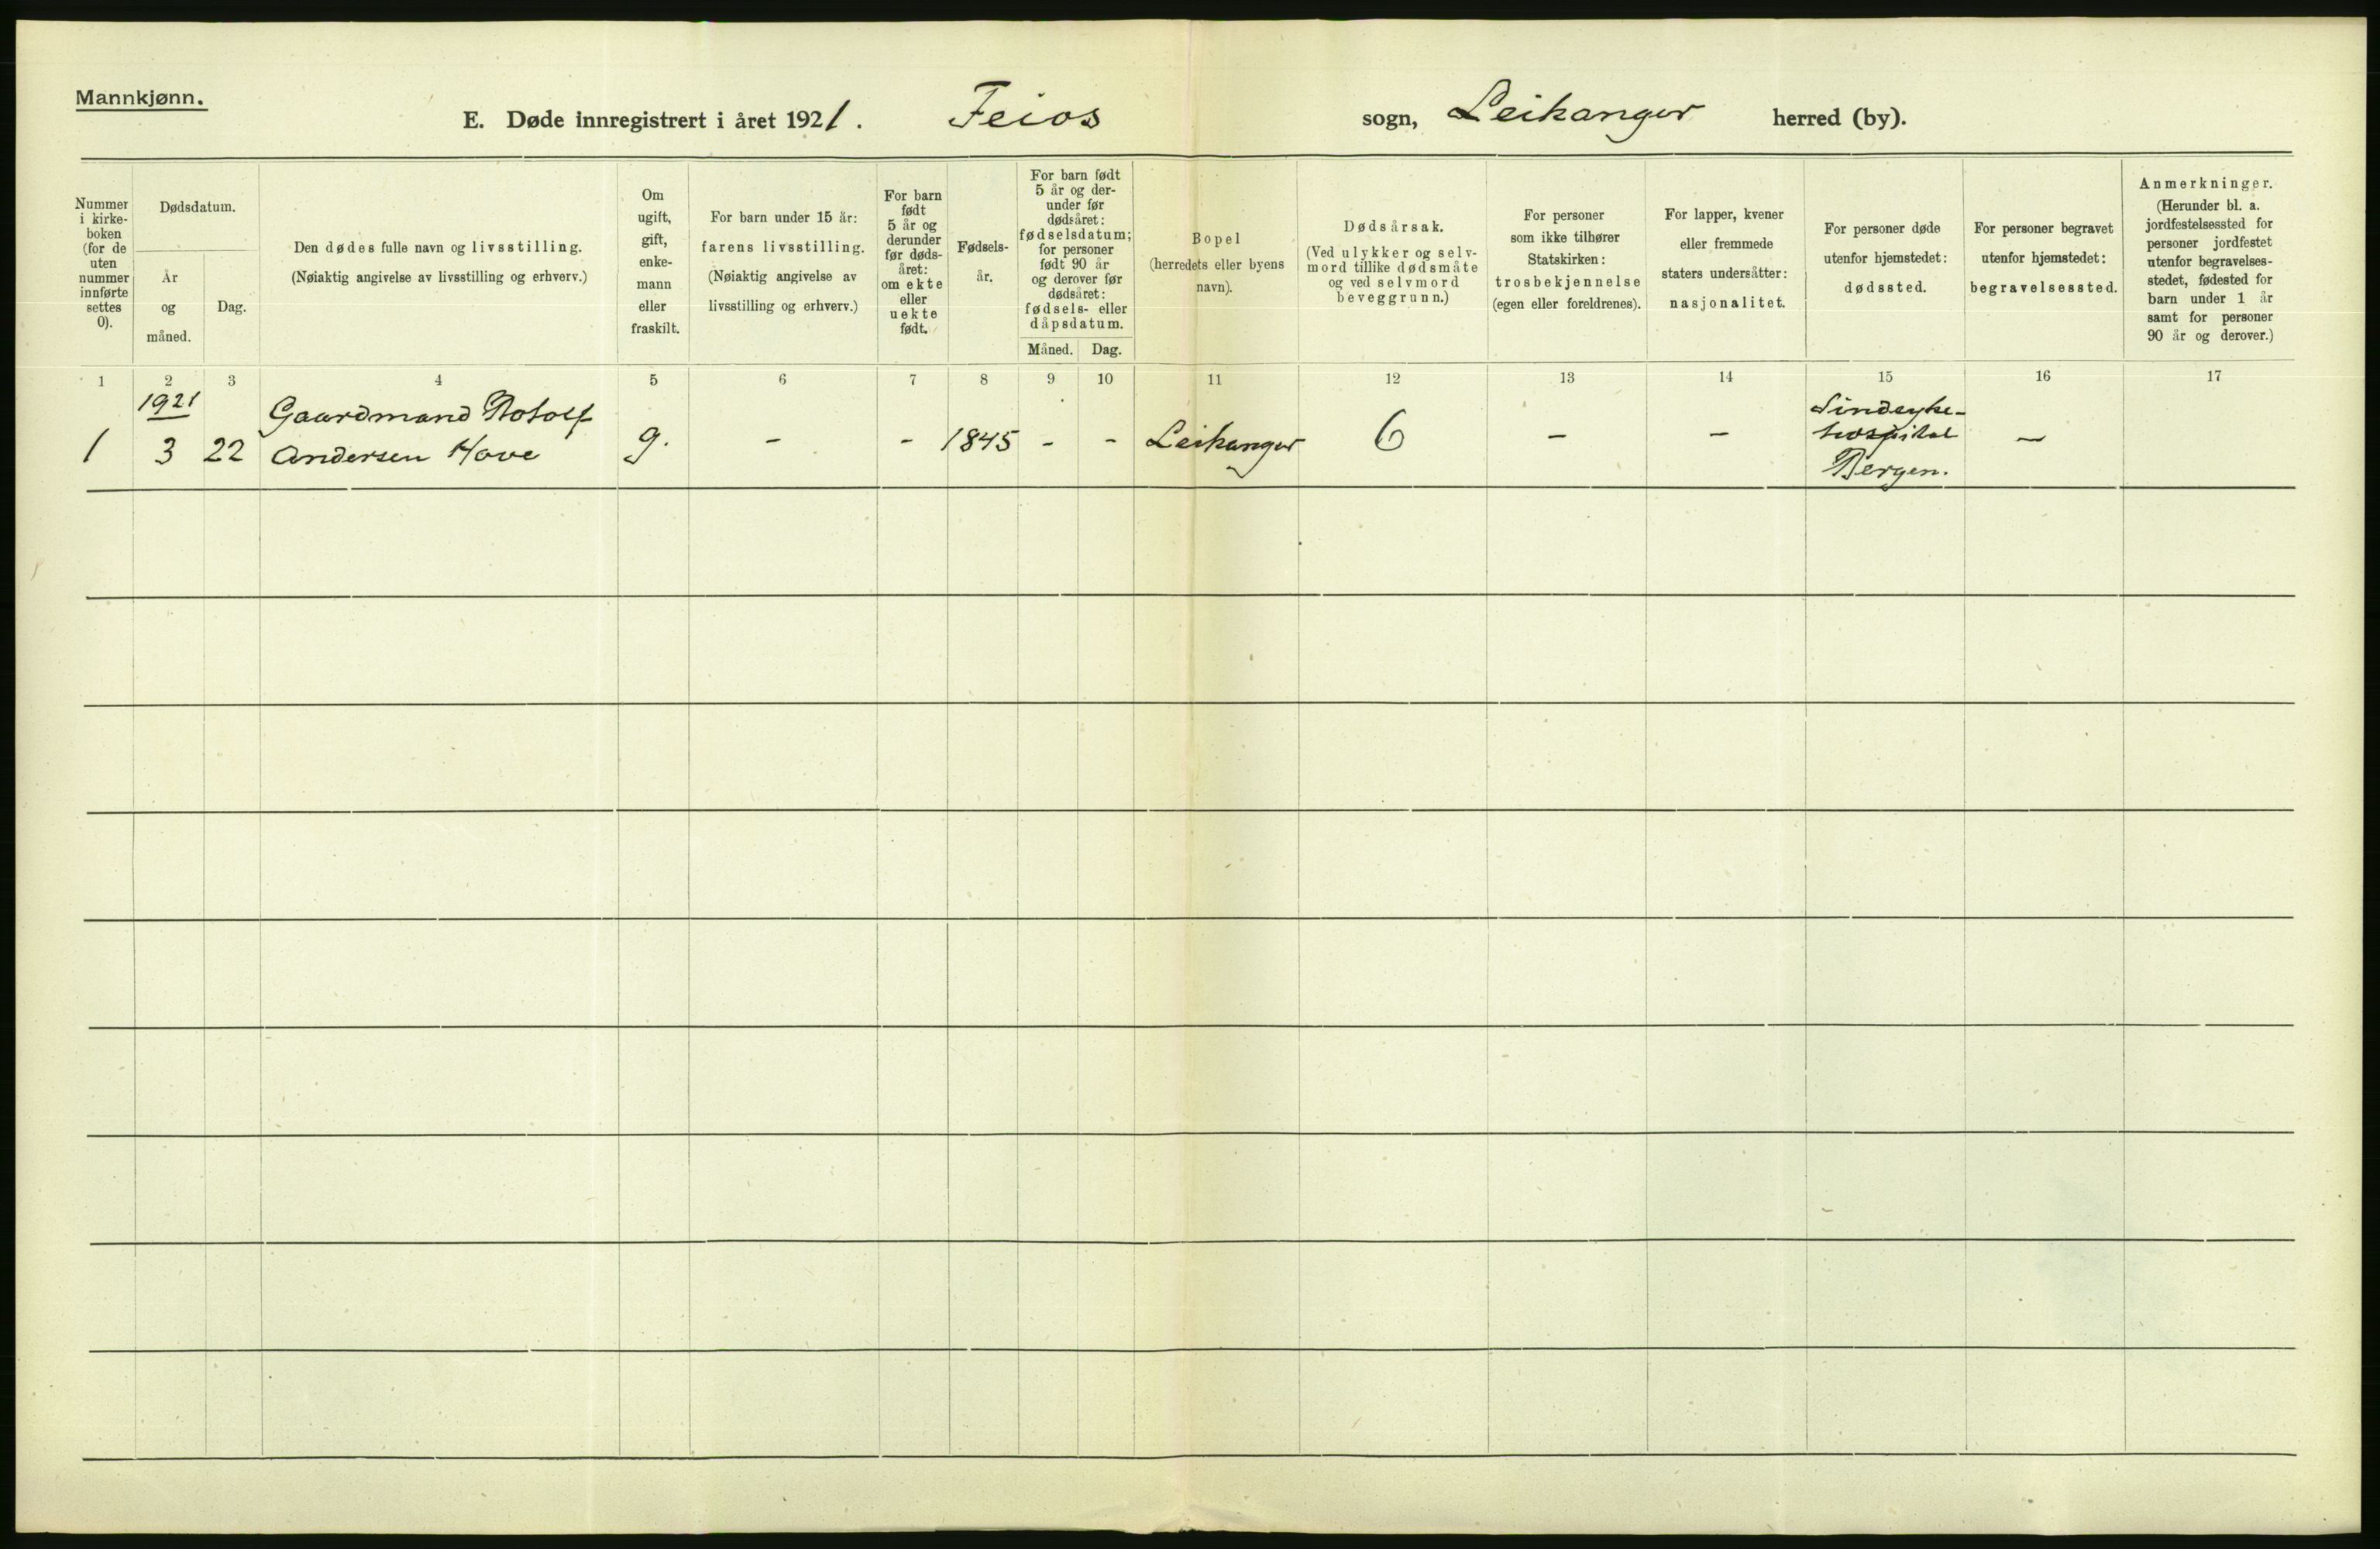 Mannkjønn.
E. Døde innregistrert i året 1921. Feios sogn, Leikanger herred (by).
Nummer i kirke-boken (for de uten nummer innførte settes 0).
Dødsdatum.
År og måned.
Dag.
Den dødes fulle navn og livsstilling.
(Nøiaktig angivelse av livsstilling og erhverv.)
Om ugift, gift, enke-mann eller fraskilt.
For barn under 15 år:
farens livsstilling.
(Nøiaktig angivelse av
livsstilling og erhverv.)
For barn født 5 år og derunder før døds-året: om ekte eller uekte født.
Fødsels-år.
For barn født 5 år og der-under før dødsåret: fødselsdatum; for personer født 90 år og derover før dødsåret: fødsels- eller dåpsdatum.
Måned. Dag.
Bopel
(herredets eller byens
navn).
Dødsårsak.
(Ved ulykker og selv-
mord tillike dødsmåte
og ved selvmord
beveggrunn.)
For personer
som ikke tilhører
Statskirken:
trosbekjennelse
(egen eller foreldrenes).
For lapper, kvener
eller fremmede
staters undersåtter:
nasjonalitet.
For personer døde
utenfor hjemstedet:
dødssted.
For personer begravet
utenfor hjemstedet:
begravelsessted.
Anmerkninger.
(Herunder bl. a.
jordfestelsessted for
personer jordfestet
utenfor begravelses-
stedet, fødested for
barn under 1 år
samt for personer
90 år og derover.)
1 2 3 4 5 6 7 8 9 10 11 12 13 14 15 16 17
1921 Gaardmand
1 3 22 Andersen Hove g. - - 1845 - - Leikanger 6 - - hospital -
Bergen.